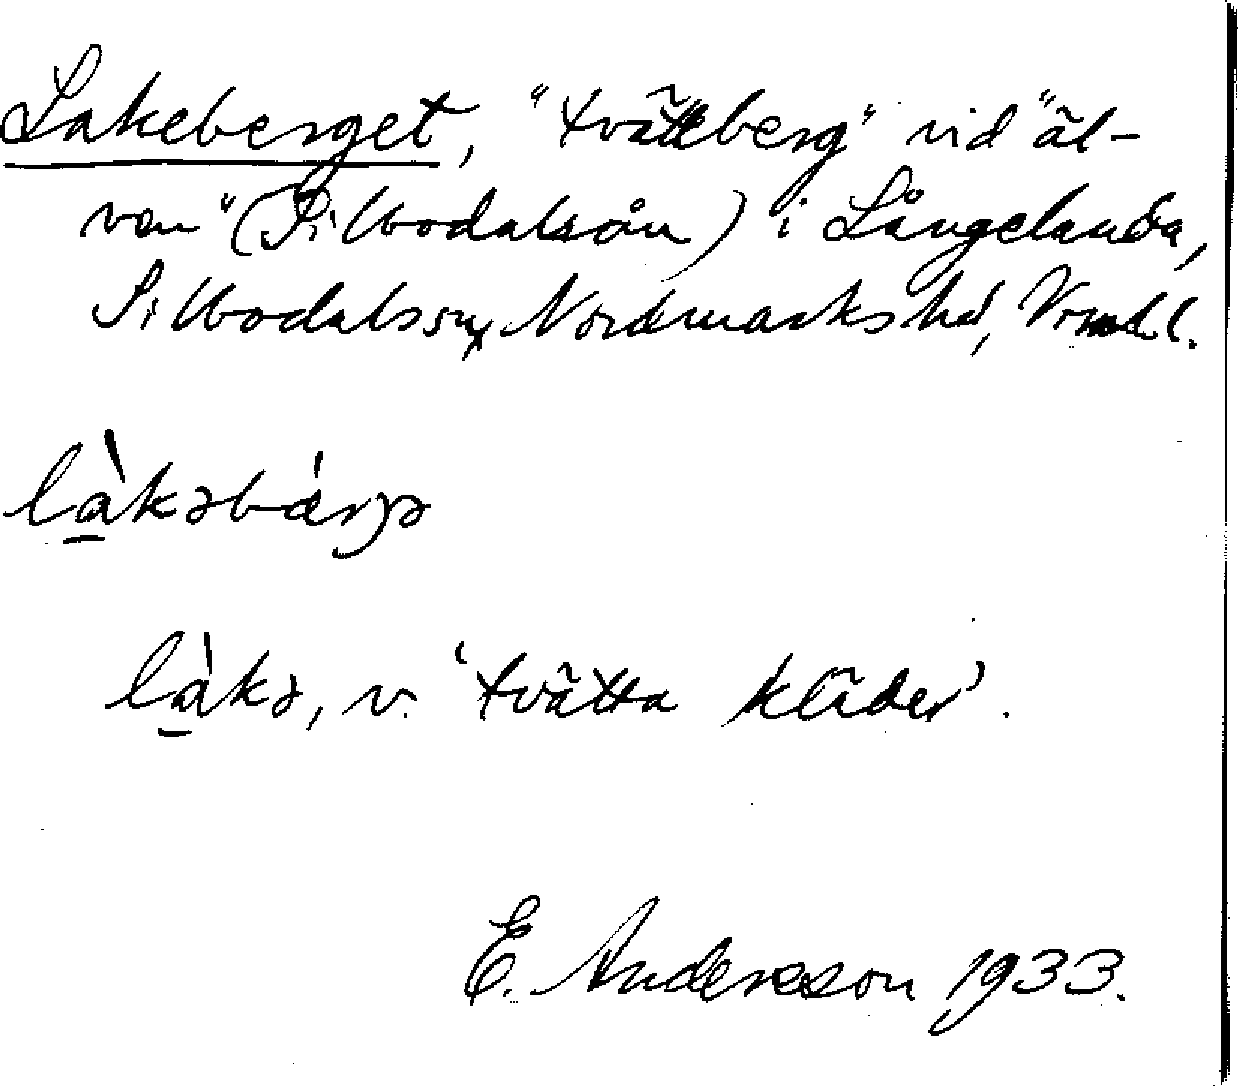 Lakeberget, "tvätteberg" vid "äl-
ven" (Silbodalsån) i Långelanda,
Silbodals sn, Nordmarks hd, Vrml.
làkəbárjə
làkə, v. 'tvätta kläder'.
E. Andersson 1933.